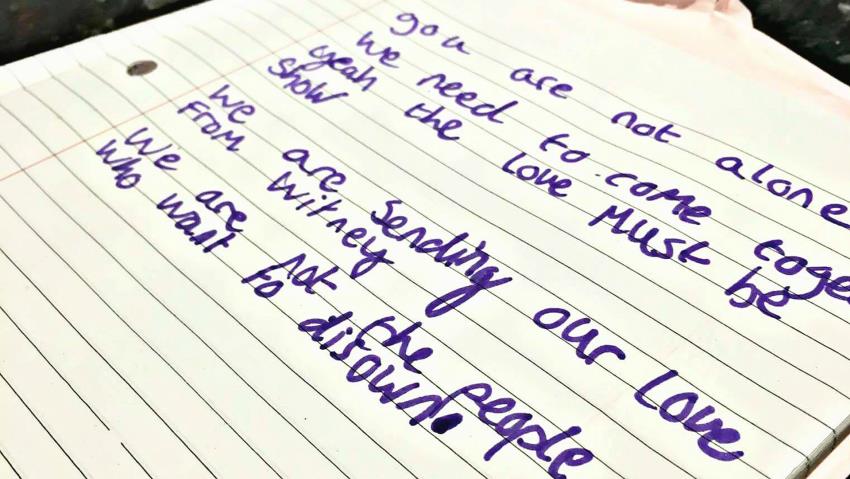 you are not alone
We need to come toge
yeah the love must be
show
we are sending our love
From witney
We are not the people
who want to disown